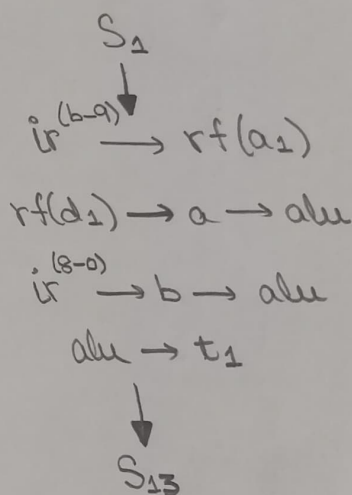 S₁
↓
ir⁽ᵇ⁻⁹⁾ → rf(a₁)
rf(d₁) → a → alu
ir⁽⁸⁻⁰⁾ → b → alu
alu → t₁
↓
S₁₃